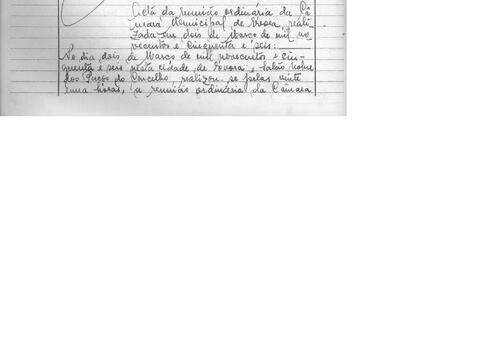 Acta da reunião ordinária da Câ-
mara Municipal de Évora reali-
zada em dois de Março de mil no-
vecentos e cinquenta e seis:
No dia dois de Março de mil novecentos e cin-
quenta e seis nesta cidade de Évora e salão nobre
dos Paços do Concelho, realizou-se pelas vinte
uma horas, a reunião ordinária da Câmara